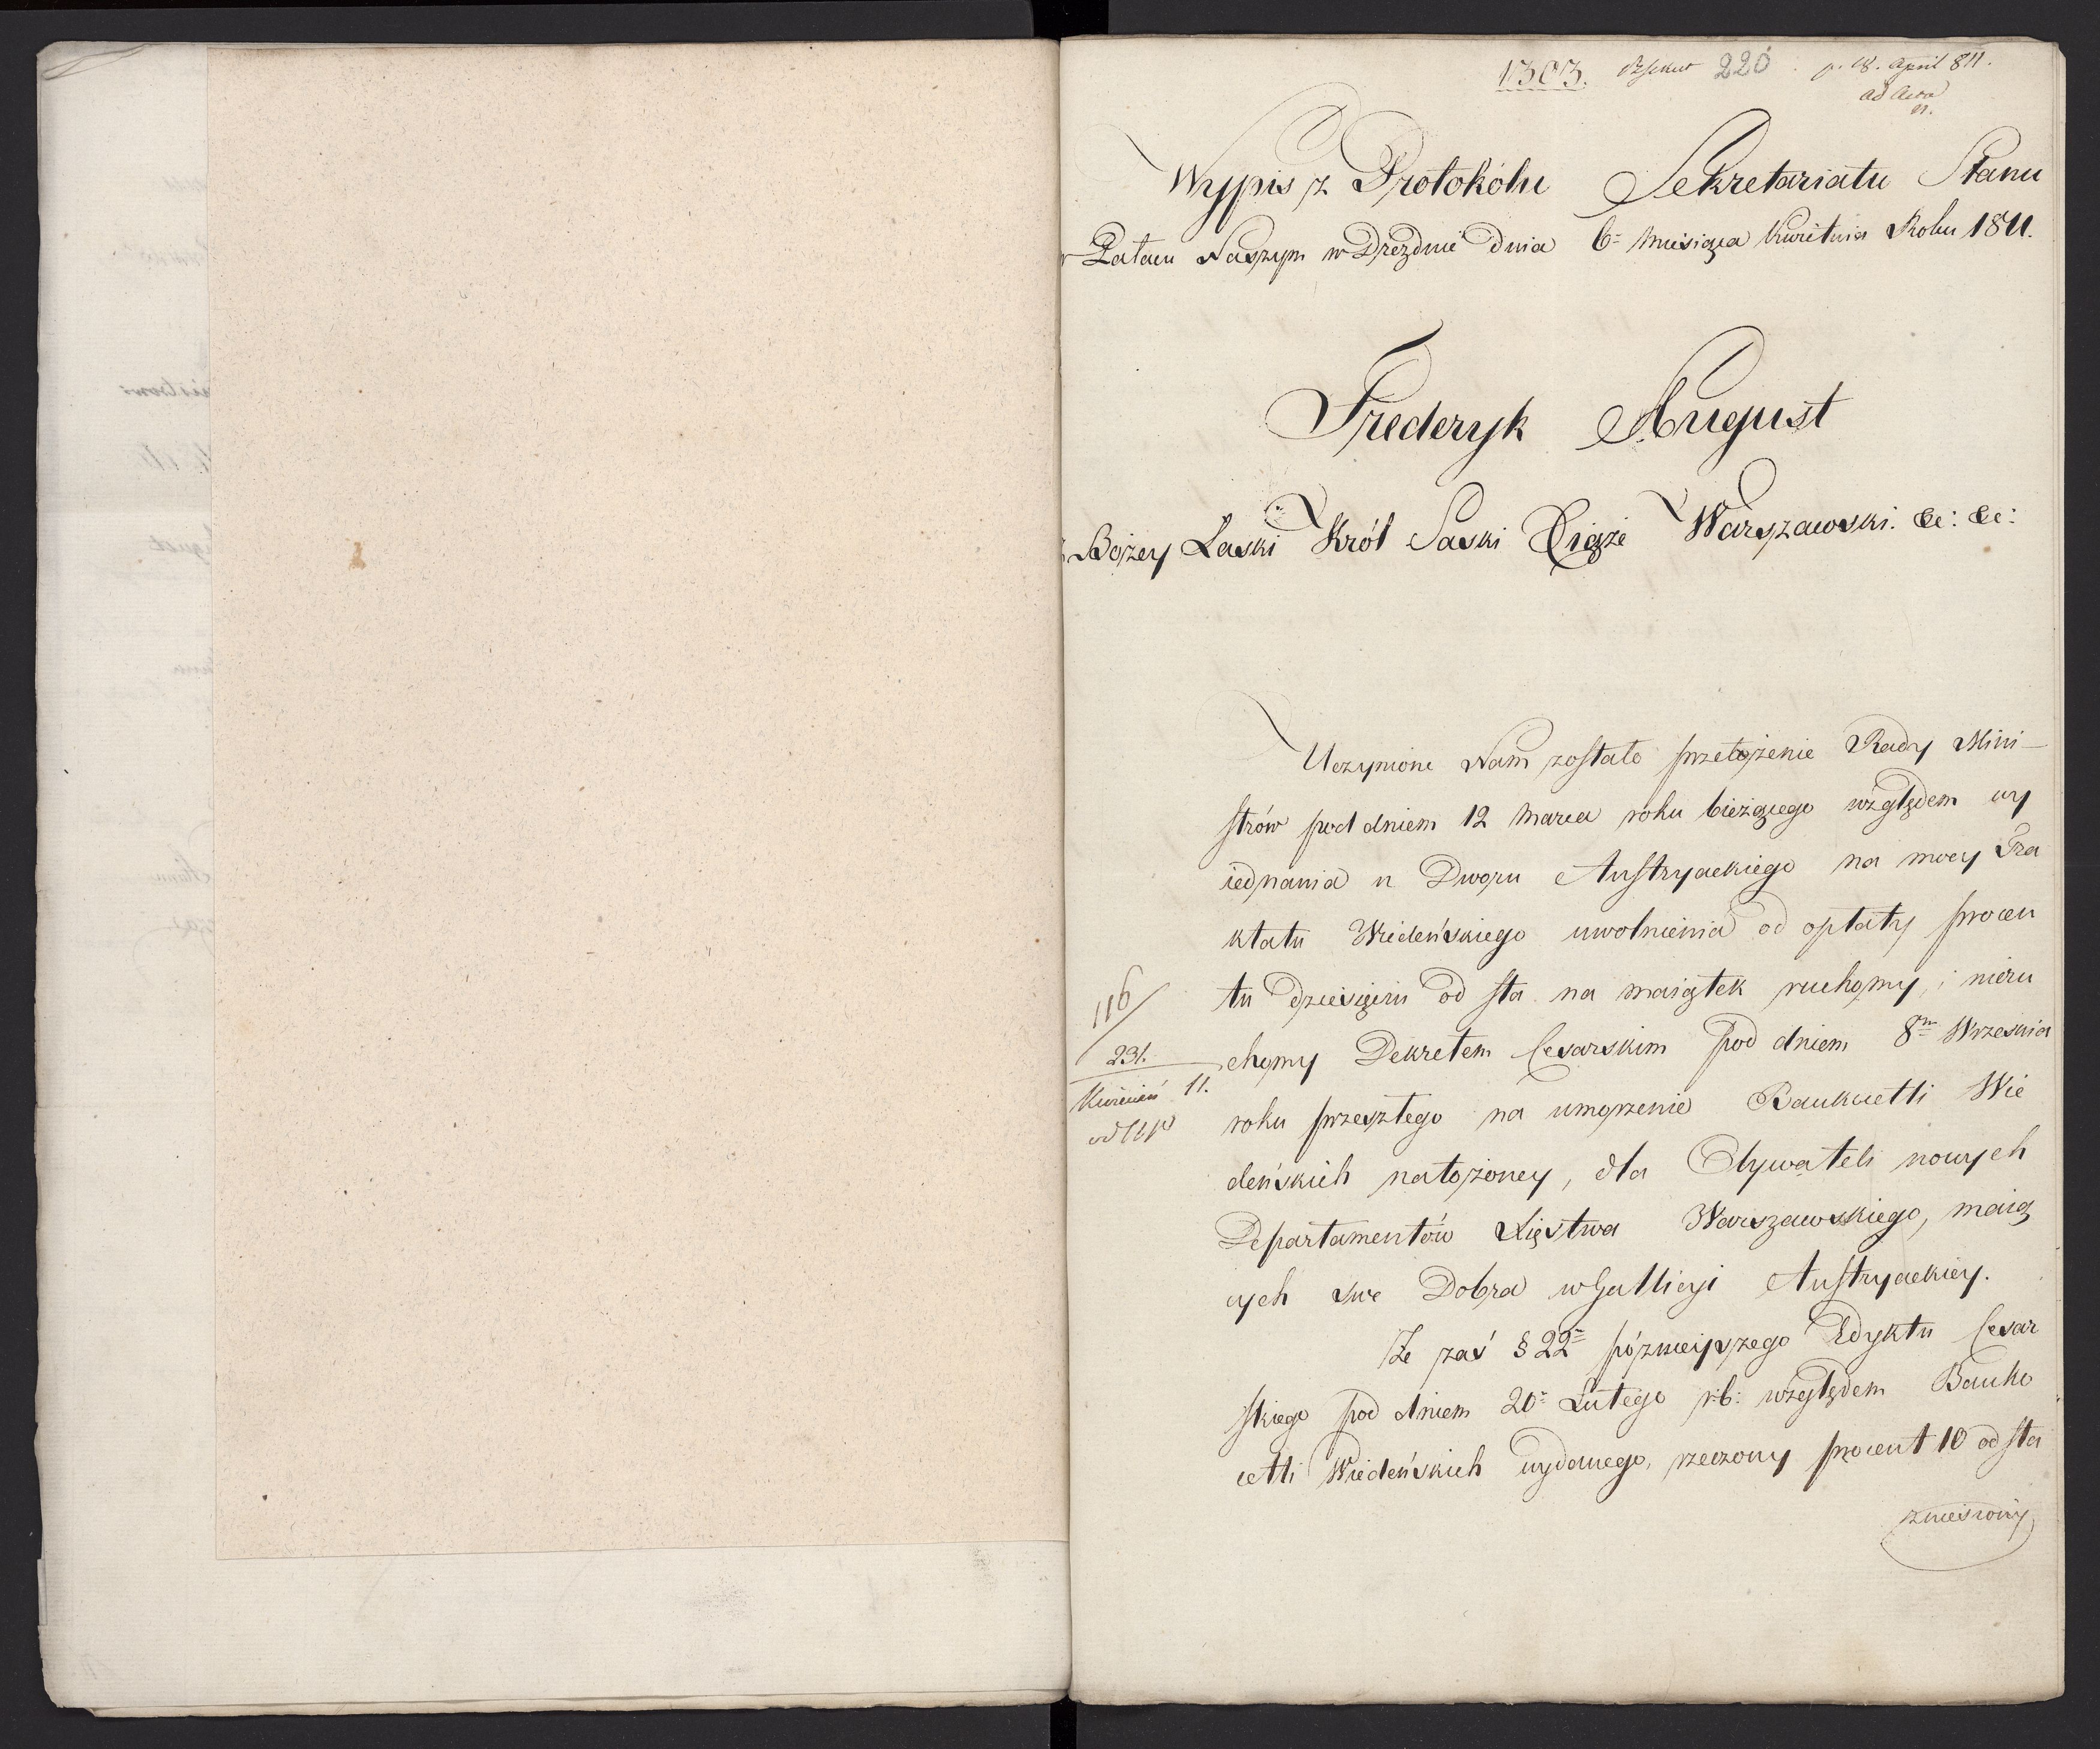 1303. 220 p. 18. April 811.
ad Acta
n.
Wypis z Protokółu Sekretariatu Stanu
w Pałacu Naszym w Dreznie Dnia 6= Miesiąca Kwietnia Roku 1811.
Frederyk August
z Bożey Łaski Król Saski Xiąże Warszawski. &c: &c:
Uczynione Nam zostało przełożenie Rady Mini-
strów pod dniem 12 Marca roku bieżącego względem wy
iednania u Dworu Austryackiego na mocy Tra
ktatu Wiedeńskiego uwolnienia od opłaty procen
tu dziesięciu od sta na maiątek ruchomy, i nieru
chomy Dekretem Cesarskim pod dniem 8m Września
roku przeszłego na umorzenie Bankcetli Wie
deńskich nałożoney, dla Obywateli nowych
Departamentów Xięstwa Warszawskiego, maią
cych swe Dobra w Gallicyi Austryackiey.
Że zaś § 22= późnieyszego Edyktu Cesar
skiego pod dniem 20= Lutego r:b: względem Banko
cetli Wiedeńskich wydanego, rzeczony procent 10 od sta
zniesiony
116/
231.
Kwiecień 11.